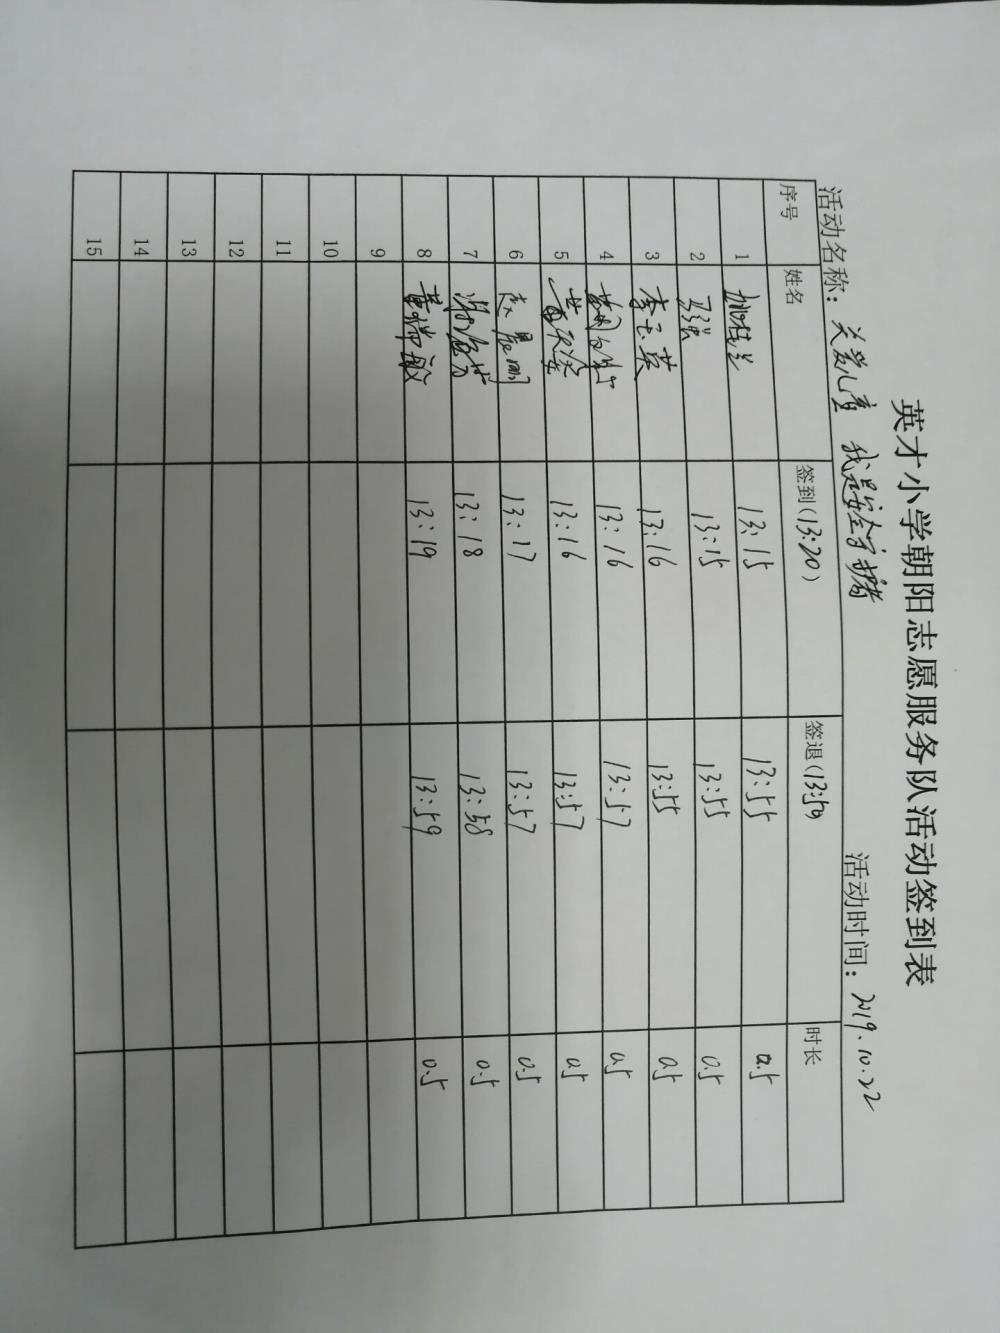 英才小学朝阳志愿服务队活动签到表
活动名称：关爱儿童 我是安全守护者 活动时间：2019.10.22
序号 姓名 签到(13:20) 签退(13:50) 时长
1 姚桂兰 13:15 13:55 0.5
2 13:15 13:55 0.5
3 李玉英 13:16 13:55 0.5
4 13:16 13:57 0.5
5 13:16 13:57 0.5
6 13:17 13:57 0.5
7 13:18 13:58 0.5
8 黄瑞敏 13:19 13:59 0.5
9
10
11
12
13
14
15